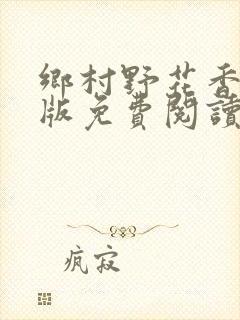 鄉村野花香
版免費閱讀
瘋寂